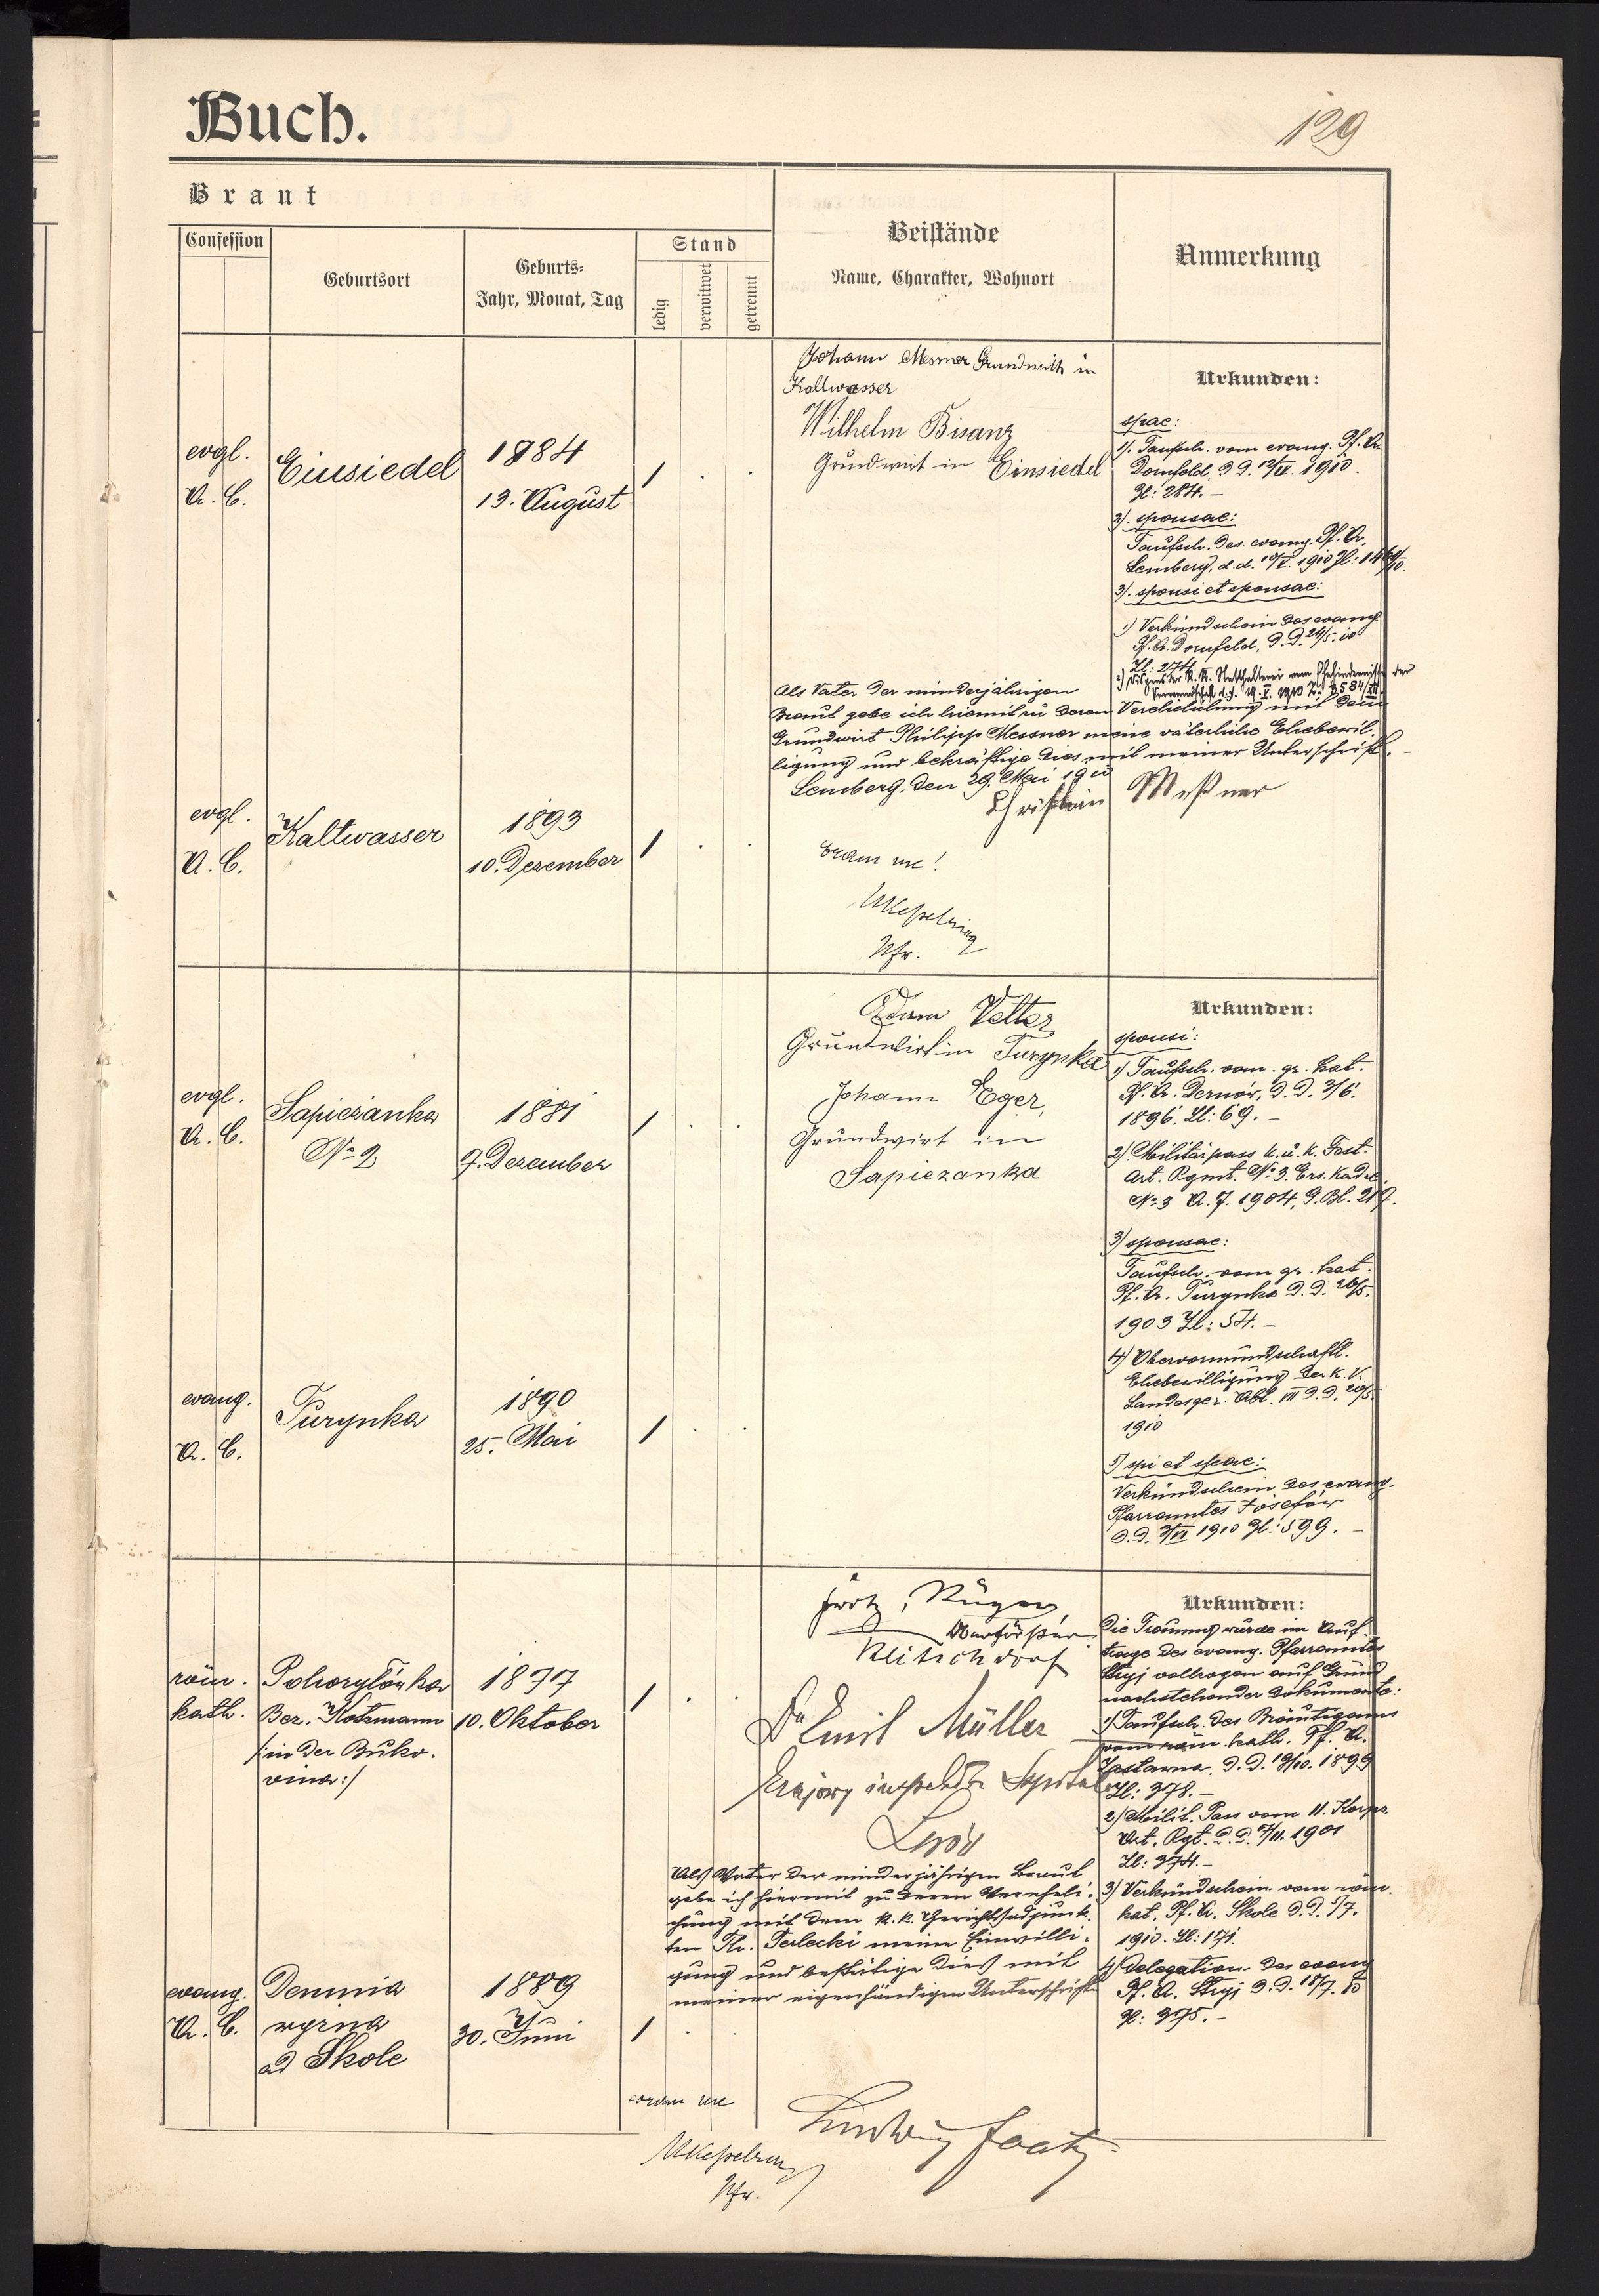 Buch.
129
Braut
Confession
Geburtsort
Geburts-
Jahr, Monat, Tag
Stand
ledig
verwitwet
getrennt
Beistände
Name, Charakter, Wohnort
Anmerkung
evgl.
A. C.
Einsiedel
1884
13. August
Johann Messner Grundwirth in
Kaltwasser
Wilhelm Bisanz
Grundwirt in Einsiedel
Urkunden:
spae:
1). Taufsch. vom evang. Pf. A.
Dornfeld, d. d. 1910.
Zl: 284. –
2). sponsae:
Taufsch. des evang. Pf. A.
Lemberg, d. d. 1910 Zl:
3). sponsi et sponsae:
1) Verkündschein des evang
Pf. A. Dornfeld, d. d. 26/5. 10
Zl: 274
2) Dispens der K. K. Statthalterei vom Ehehindernisse der
d. d. 19. V. 1910
Als Vater der minderjährigen
Braut gebe ich hiemit zu deren Verehelichung mit dem
Grundwirt Philipp Messner meine väterliche Ehebewil-
ligung und bekräftige dies mit meiner Unterschrift. –
Lemberg, den 29. Mai 1910
Christian Meßner
evgl.
A. C.
Kaltwasser
1893
10. Dezember
coram me!
Pfr.
evgl.
A. C.
Sapiezanka
No 2
1881
7. Dezember
Adam Vetter
Grundwirt in Turynka
Johann Eger,
Grundwirt in
Sapiezanka
Urkunden:
sponsi:
1) Taufsch. vom gr. kat.
Pf. A. Dernów, d. d. 3/6.
1896. Zl: 69. –
2) Militärpass k. u. k. Fest.
Art. Rgmt. No 3. Ers. Kad.
No 3 A. J. 1904, G. Bl. 217.
3) sponsae:
Taufsch. vom gr. kat.
Pf. A. Turynka d. d. 26/5.
1903 Zl: 54. –
4) Obervormundschaftl.
Ehebewilligung der K. K.
Landesger. Abt. III d. d. 20/5
1910
5) spi et spae:
Verkündschein des evang.
Pfarramtes Josefów
d. d. 3/VI 1910 Zl: 599. –
evang.
A. C.
Turynka
1890
25. Mai
röm.
kath.
Pohorylówka
Bez. Kotzmann
/:in der Buko-
wina:/
1877
10. Oktober
Oberförster
Klitschdorf
Dr Emil Müller
krajowy inspektor
Lwów
Urkunden:
Die Trauung wurde im Auf-
trage des evang. Pfarramtes
Stryj vollzogen auf Grund
nachstehender Dokumente:
1) Taufsch. des Bräutigams
vom röm. kath. Pf. A.
Zastawna, d. d. 19/10. 1899
Zl: 378. –
2) Milit. Pass vom 11. Korps.
Art. Rgt. d. d. 7/11. 1901
Zl: 374. –
3) Verkündschein vom röm.
kat. Pf. A. Skole d. d. 5/7.
1910. Zl: 171.
4) Delegation des evang
Pf. A. Stryj d. d. 18/7. 10
Zl: 375. –
Als Vater der minderjährigen Braut
gebe ich hiermit zu deren Vereheli-
chung mit dem k. k. Gerichtsadjunk-
ten Th. Terlecki meine Einwilli-
gung und bestätige dies mit
meiner eigenhändigen Unterschrift
evang.
A. C.
Demnia
wyzna
ad Skole
1889
30. Juni
coram me
Pfr.
Ludwig